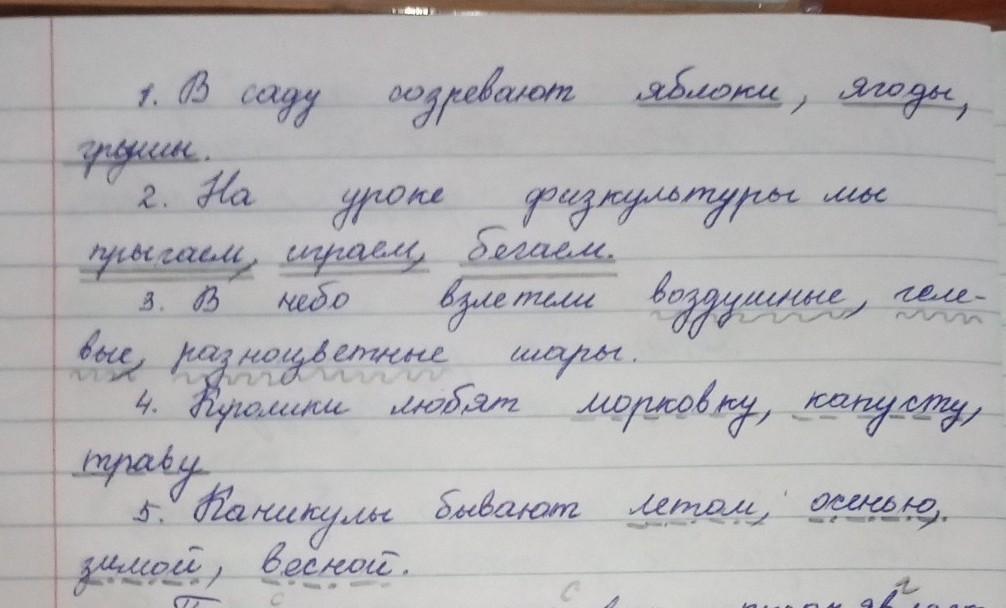 1. В саду созревают яблоки, ягоды,
груши.
2. На уроке физкультуры мы
прыгаем, играем, бегаем.
3. В небо взлетели воздушные, геле-
вые, разноцветные шары.
4. Кролики любят морковку, капусту,
траву
5. Каникулы бывают летом, осенью,
зимой, весной.